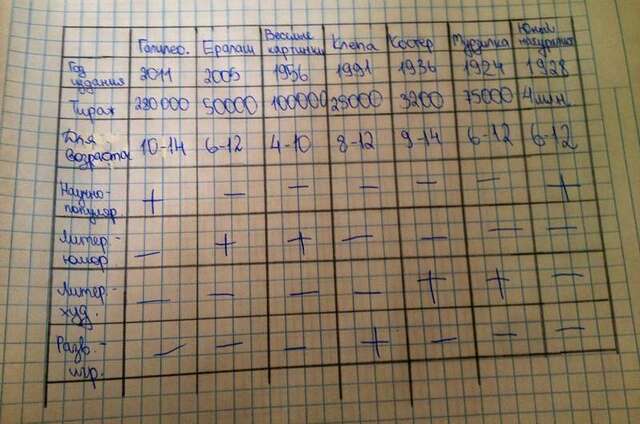 Галилео. Ералаш Веселые картинки Клепа Костер Мурзилка Юный натуралист
Год издания 2011 2005 1956 1991 1936 1924 1928
Тираж 280000 50000 100000 28000 3200 75000 4 млн.
Для возраста 10-14 6-12 4-10 8-12 9-14 6-12 6-12
Научно-популяр + - - - - - +
Литер.-юмор. - + + - - - -
Литер.-худ. - - - - + + -
Разв.-игр. - - - + - - -